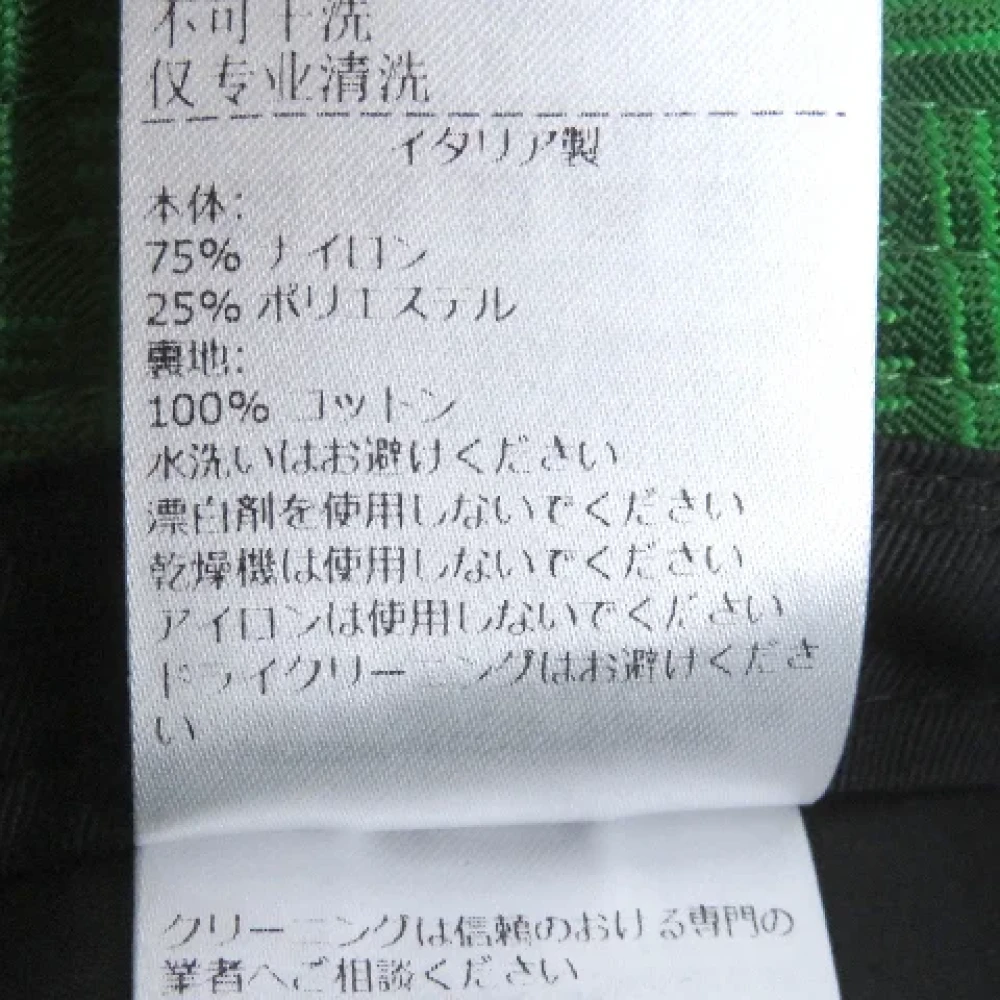 不可干洗
仅专业清洗
イタリア製
本体:
75% ナイロン
25% ポリエステル
裏地:
100% コットン
水洗いはお避けください
漂白剤を使用しないでください
乾燥機は使用しないでください
アイロンは使用しないでください
ドライクリーニングはお避けくださ
い
クリーニングは信頼のおける専門の
業者へご相談ください